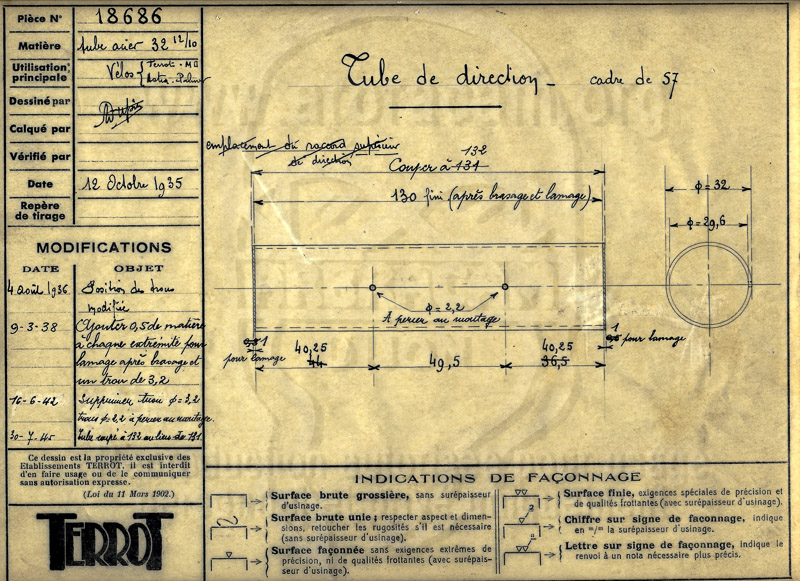 Pièce N° 18686
Matière tube acier 32 12/10
Utilisation principale Vélos { Terrot - M
Dessiné par
Calqué par
Vérifié par
Date 12 Octobre 1935
Repère de tirage
MODIFICATIONS
DATE OBJET
4 Août 1936 Position des trous
modifiée
9-3-38 Ajouter 0,5 de matière
à chaque extrémité pour
lamage après brasage et
un trou de 3,2
16-6-42 Supprimer trou φ=3,2
trous φ=2,2 à percer au montage.
30-7-45 Tube coupé à 132 au lieu de 131
Ce dessin est la propriété exclusive des
Etablissements TERROT. il est interdit
d'en faire usage ou de le communiquer
sans autorisation expresse.
(Loi du 11 Mars 1902.)
TERROT
Tube de direction - cadre de 57
emplacement du raccord supérieur
de direction
132
Couper à 131
130 fini (après brasage et lamage)
φ=32
φ=29,6
φ=2,2
A percer au montage
0,5 1
pour lamage
40,25
44
49,5
40,25
36,5
1
0,5 pour lamage
INDICATIONS DE FAÇONNAGE
Surface brute grossière, sans surépaisseur
d'usinage.
Surface brute unie; respecter aspect et dimen-
sions, retoucher les rugosités s'il est nécessaire
(sans surépaisseur d'usinage).
Surface façonnée sans exigences extrêmes de
précision, ni de qualités frottantes (avec surépais-
seur d'usinage).
Surface finie, exigences spéciales de précision et
de qualités frottantes (avec surépaisseur d'usinage).
3
Chiffre sur signe de façonnage, indique
en =/= la surépaisseur d'usinage.
a
Lettre sur signe de façonnage, indique le
renvoi à un nota nécessaire plus précis.